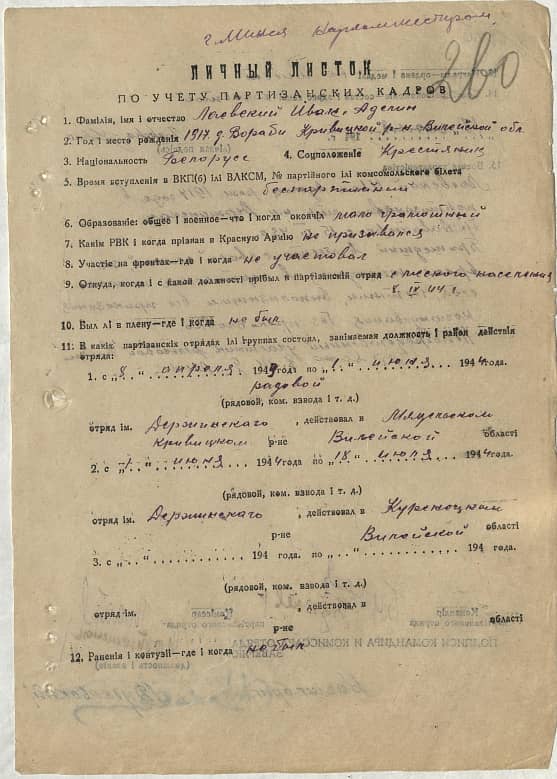 г. Минск
280
ЛИЧНЫЙ ЛИСТОК
ПО УЧЕТУ ПАРТИЗАНСКИХ КАДРОВ
1. Фамілія, імя і отчество Лоевский Иван Адамович
2. Год і место рожденія 1917 д. Кривицкий р-н. Вилейской обл
3. Національность белорусс 4. Соцположеніе Крестянин
5. Время вступления в ВКП(б) ілі ВАКСМ, № партійного ілі комсомольского білета
беспартийный
6. Образованіе: общее і военное—что і когда окончіл мало грамотный
7. Какім РВК і когда прізван в Красную Армію не призывался
8. Участіе на фронтах—где і когда не участвовал
9. Откуда, когда і с какой должності прібыл в партізанскій отряд с местного населения
8 IV 44 г.
10. Был лі в плену—где і когда не был
11. В какіх партізанскіх отрядах ілі группах состоял, занімаемая должность і район действія
отряда:
1. с „8„ апреля 1944 года по „1„ июня 1944 года
рядовой
(рядовой, ком. взвода і т. д.)
отряд ім. Держинского, действовал в
Кривицком р-не Вилейской області
2. с „1„ июня 1944 года по „18„ июня 1944 года
(рядовой, ком. взвода і т. д.)
отряд ім. Держинского, действовал в Куренецком
р-не Вилейской області
3. с „..„ 194 года. по „..„ 194 года.
(рядовой, ком. взвода і т. д.)
отряд ім. , действовал в
р-не області
12. Раненія і контузіі—где і когда не был